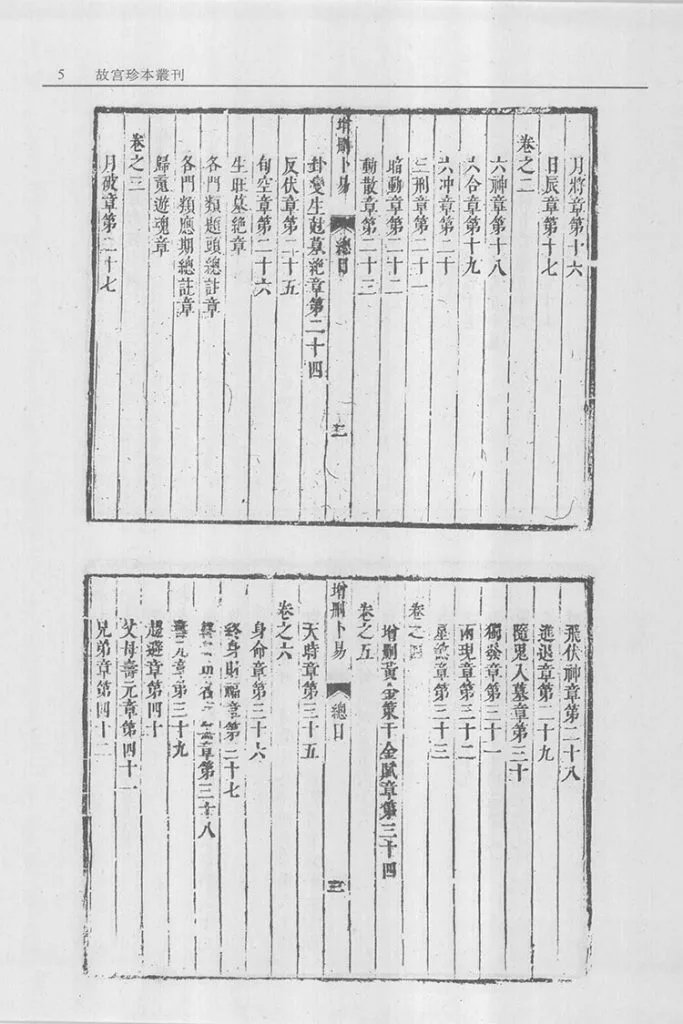 5 故宮珍本叢刊
月將章第十六
日辰章第十七
卷之二
六神章第十八
六合章第十九
六冲章第二十
三刑章第二十一
暗動章第二十二
動散章第二十三
增刪卜易 總目 二
卦變生尅墓絶章第二十四
反伏章第二十五
旬空章第二十六
生旺墓絶章
各門類題頭總註章
各門類應期總註章
歸䰟遊魂章
卷之三
月破章第二十七
飛伏神章第二十八
進退章第二十九
隨鬼入墓章第三十
獨發章第三十一
兩現章第三十二
星煞章第三十三
卷之四
增刪黃金策千金賦章第三十四
卷之五
增刪卜易 總目 三
天時章第三十五
卷之六
身命章第三十六
終身財福章第三十七
終身功名章第三十八
壽元章第三十九
趨避章第四十
父母壽元章第四十一
兄弟章第四十二